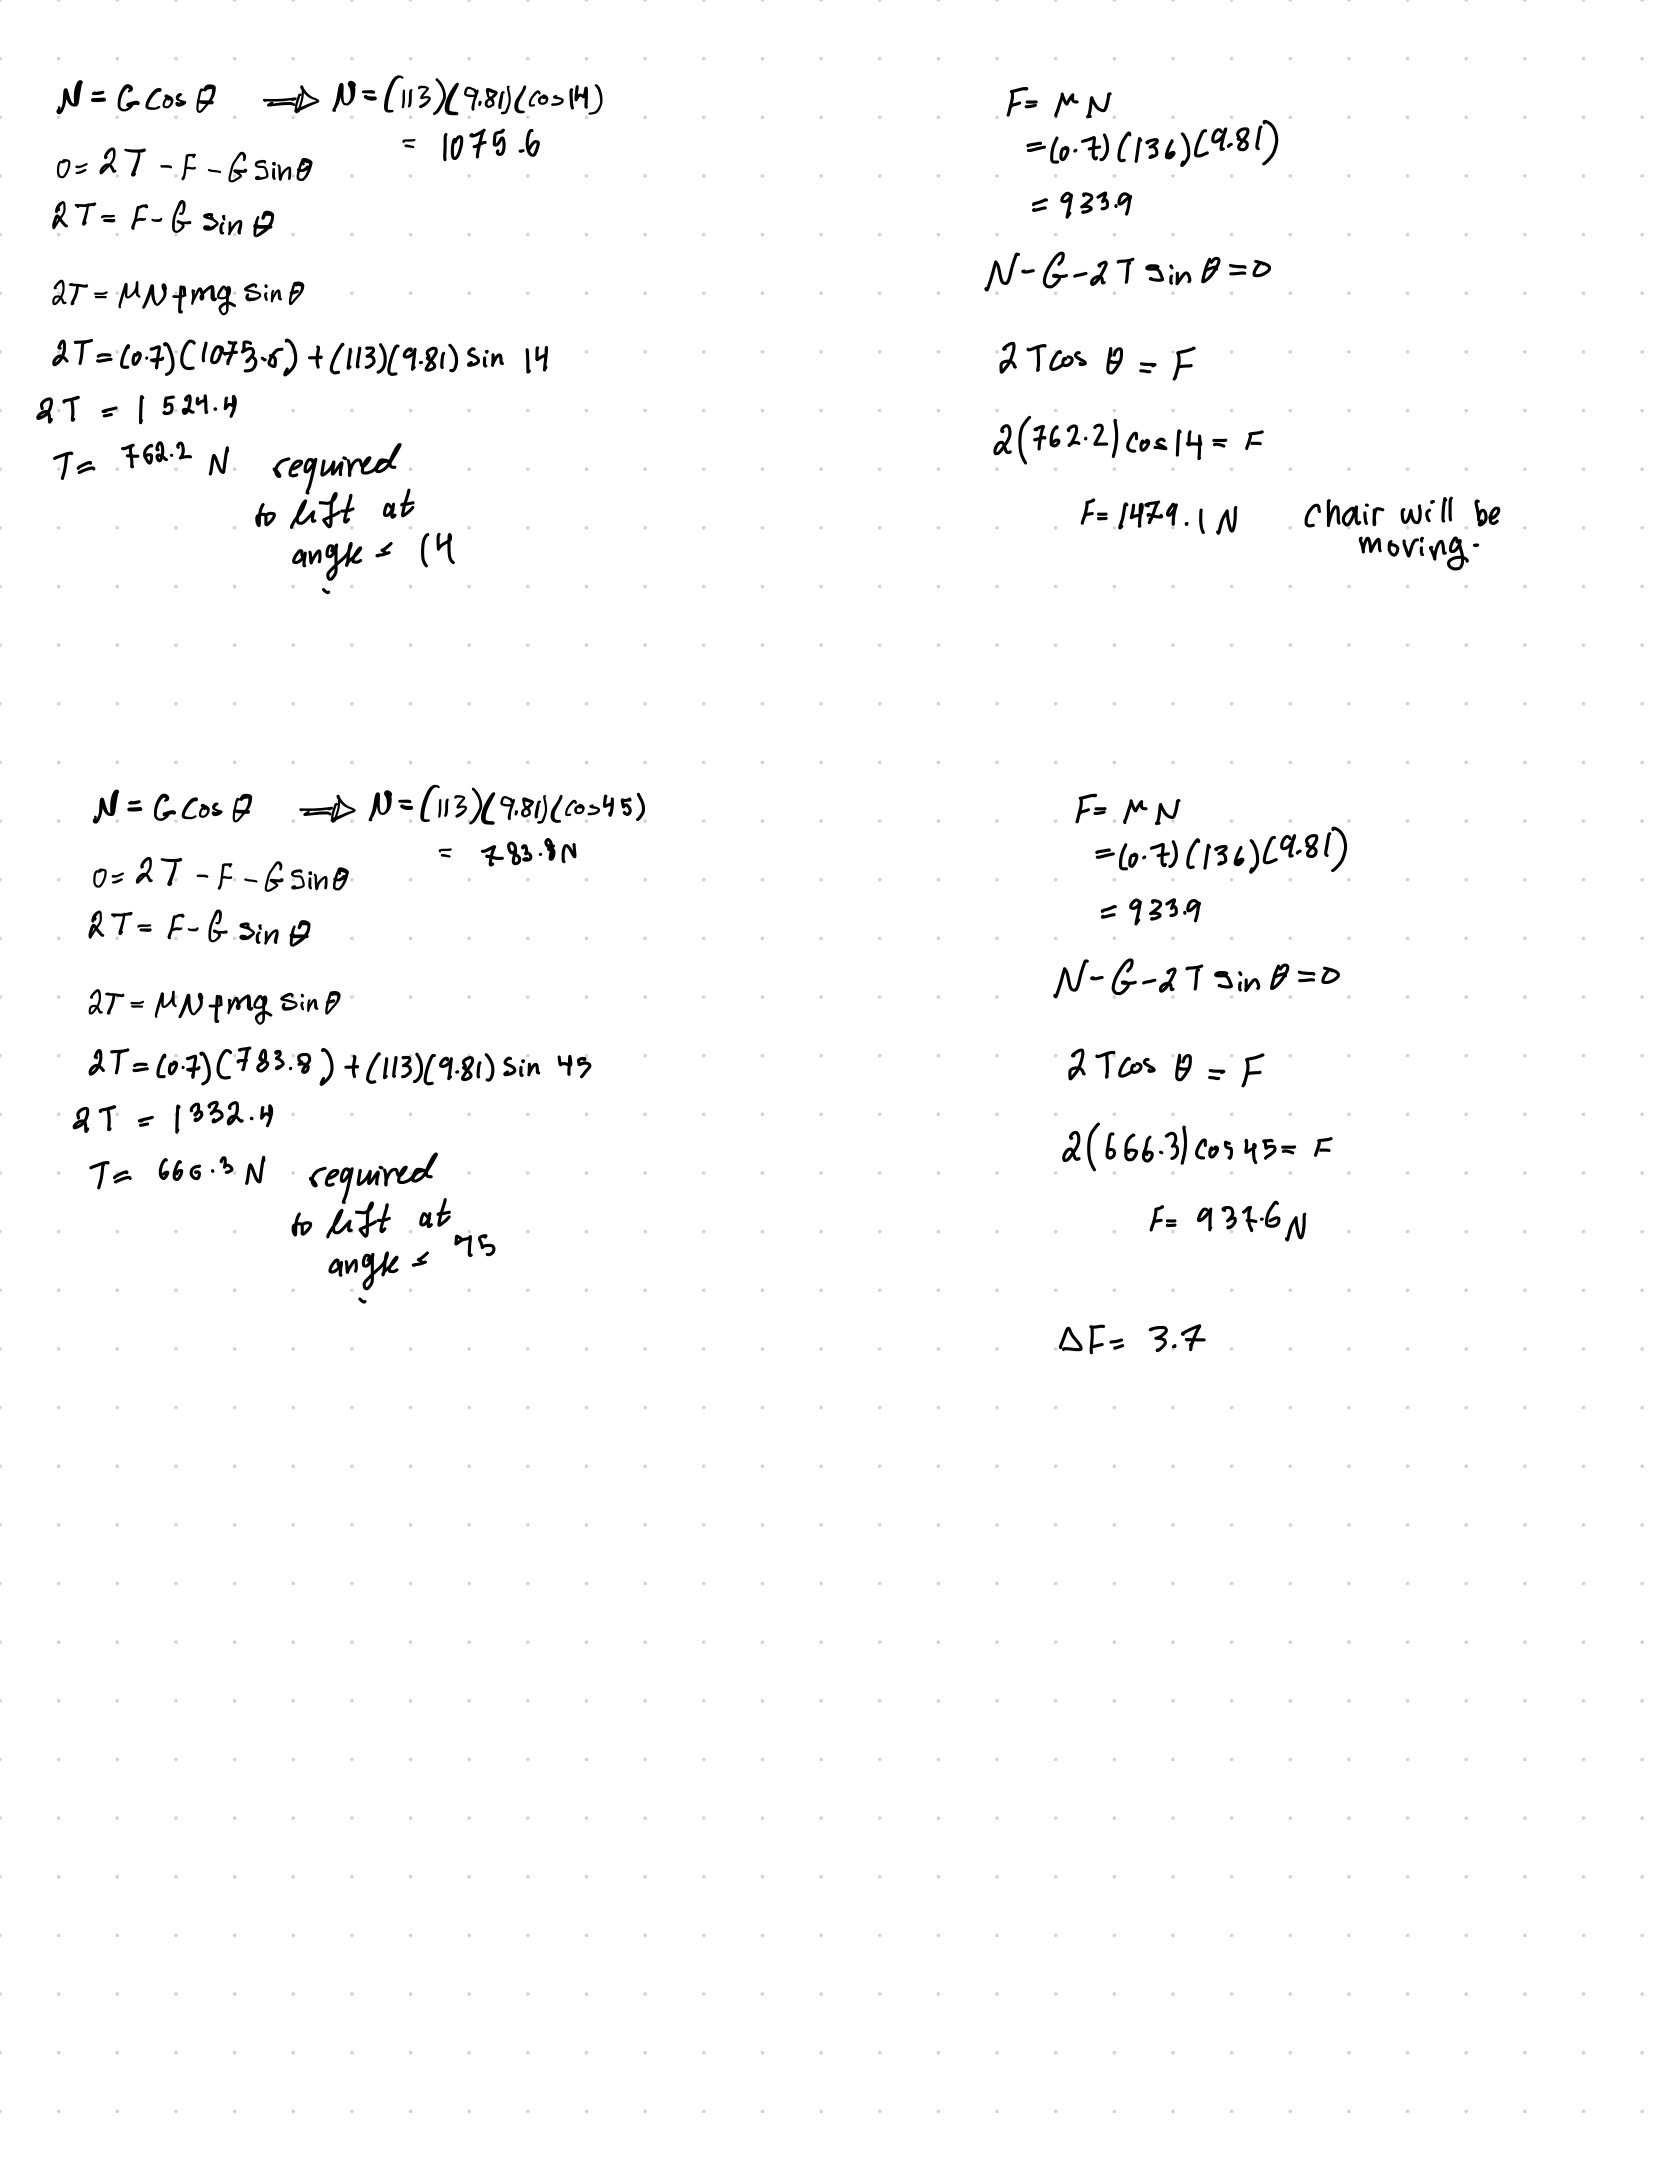 N = G cos θ ⟹ N = (113)(9.81)(cos 14)
= 1075.6
0 = 2T - F - G sin θ
2T = F - G sin θ
2T = μN + mg sin θ
2T = (0.7)(1075.6) + (113)(9.81) sin 14
2T = 1524.4
T = 762.2 N required
to lift at
angle = 14
F = μN
= (0.7)(136)(9.81)
= 933.9
N - G - 2T sin θ = 0
2T cos θ = F
2(762.2) cos 14 = F
F = 1479.1 N chair will be
moving.
N = G cos θ ⟹ N = (113)(9.81)(cos 45)
= 783.8 N
0 = 2T - F - G sin θ
2T = F - G sin θ
2T = μN + mg sin θ
2T = (0.7)(783.8) + (113)(9.81) sin 45
2T = 1332.4
T = 666.3 N required
to lift at
angle = 45
F = μN
= (0.7)(136)(9.81)
= 933.9
N - G - 2T sin θ = 0
2T cos θ = F
2(666.3) cos 45 = F
F = 937.6 N
ΔF = 3.7